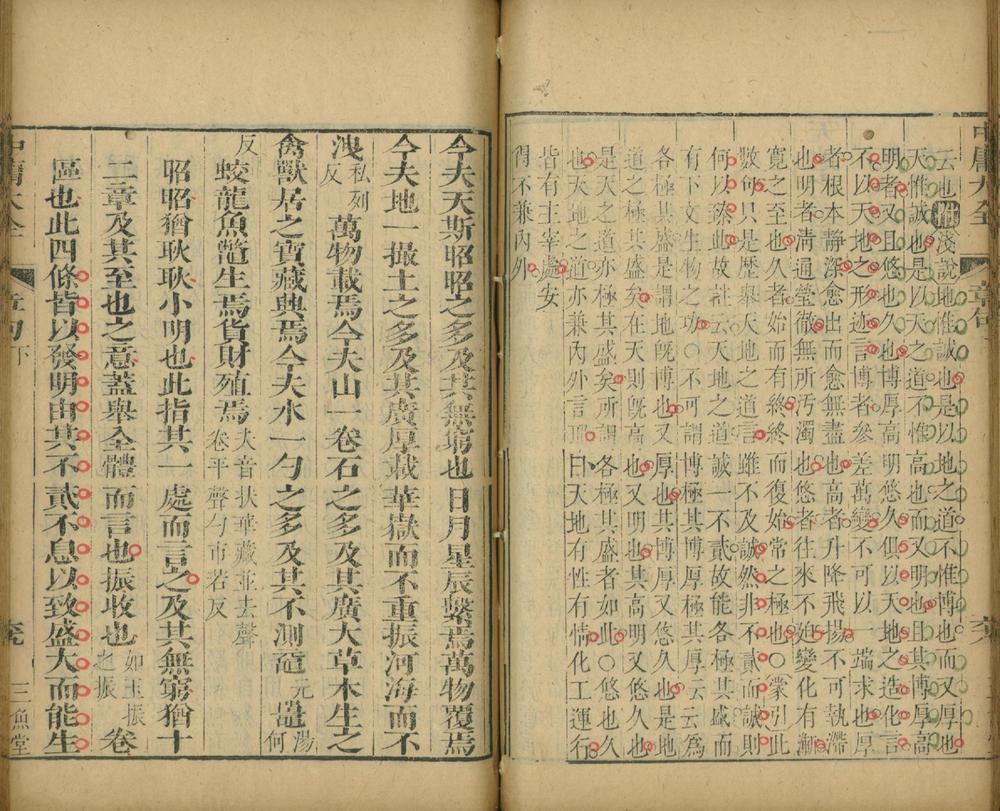 中庸大全　章句下
云也附淺說地惟誠也是以地之道不惟博也而又厚也
天惟誠也是以天之道不惟高也而又明也且其博厚高
明者又且悠也久也博厚高明悠久俱以天地之造化言
不以天地之形迹言博者參差萬變不可以一端求也厚
者根本靜深愈出而愈無盡也高者升降飛揚不可執滯
也明者清通瑩徹無所汚濁也悠者往來不迫變化有漸
寬之至也久者始而有終終而復始常之極也○蒙引此
數句只是歷舉天地之道言雖不及誠然非不貳而誠則
何以致此故註云天地之道誠一不貳故能各極其盛而
有下文生物之功○不可謂博極其博厚極其厚云云爲
各極其盛是謂地旣博也又厚也其博厚又悠久也是地
道之極其盛矣在天則旣高也又明也其高明又悠久也
是天之道亦極其盛矣所謂各極其盛者如此○悠也久
也天地之道亦兼內外言耶曰天地有性有情化工運行
皆有主宰處安
得不兼內外
今夫天斯昭昭之多及其無窮也日月星辰繫焉萬物覆焉
今夫地一撮土之多及其廣厚載華嶽而不重振河海而不
洩私列反萬物載焉今夫山一卷石之多及其廣大草木生之
禽獸居之寶藏興焉今夫水一勺之多及其不測黿元鼉湯何
反蛟龍魚鼈生焉貨財殖焉夫音扶華藏並去聲卷平聲勺市若反
昭昭猶耿耿小明也此指其一處而言之及其無窮猶十
二章及其至也之意蓋舉全體而言也振收也如玉振之振卷
區也此四條皆以發明由其不貳不息以致盛大而能生
中庸大全　章句下　三魚堂